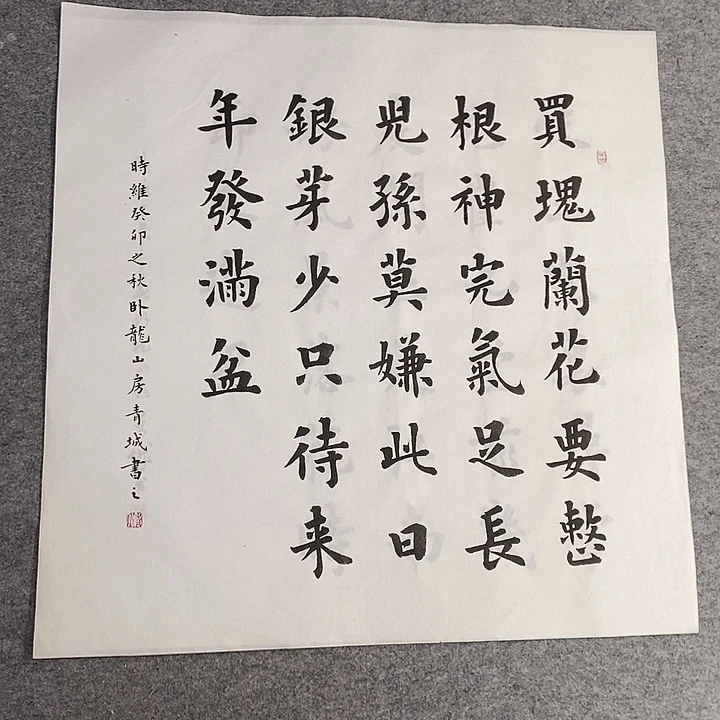 買塊蘭花要整
根神完氣足長
兒孫莫嫌此日
銀芽少只待来
年發滿盆
時維癸卯之秋卧龍山房青城書之